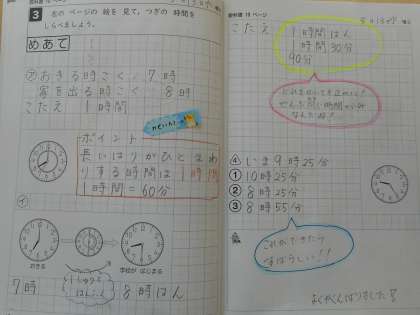 教科書 18 ページ
3 左の ページの 絵を 見て、つぎの 時間を
しらべましょう。
めあて
㋐おきる時こく 7時
家を出る時こく 8時
こたえ 1時間
ポイント
長いはりがひとまわ
りする時間は 1時間
1時間=60分
㋑
おきる
学校が はじまる
7時
1しゅうと
はんぶん
8時はん
教科書 19 ページ
こたえ
1時間はん
1時間30分
90分
④いま9時25分
①10時25分
②8時25分
③8時55分
これができたら
すばらしい!!
よくがんばりました